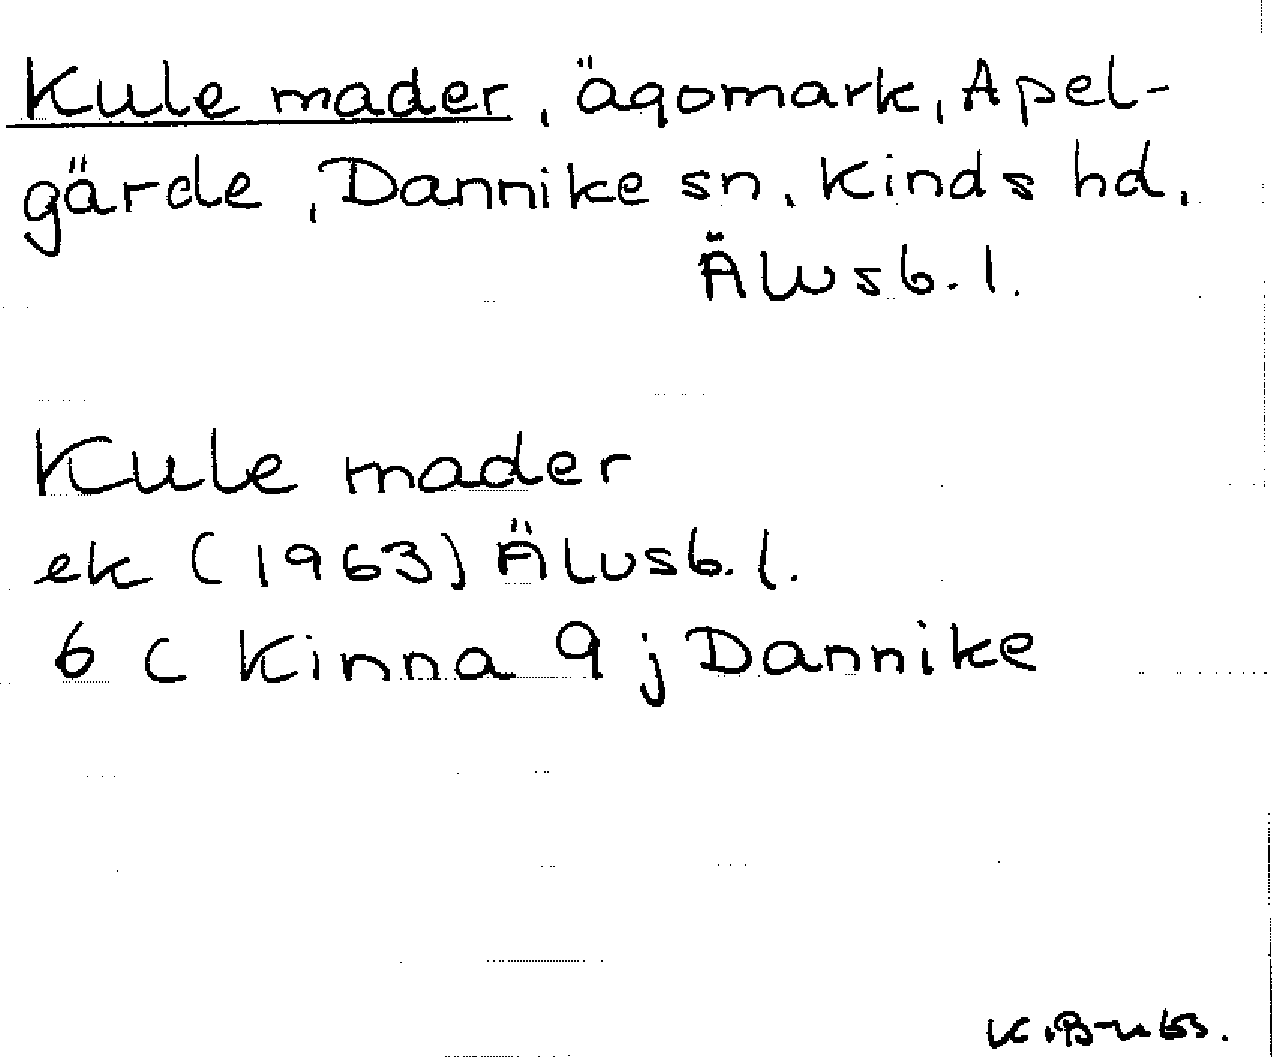 Kule mader, ägomark, Apel-
gärde, Dannike sn, Kinds hd,
Älvsb. l.
Kule mader
ek (1963) Älvsb. l.
6 C Kinna 9 j Dannike